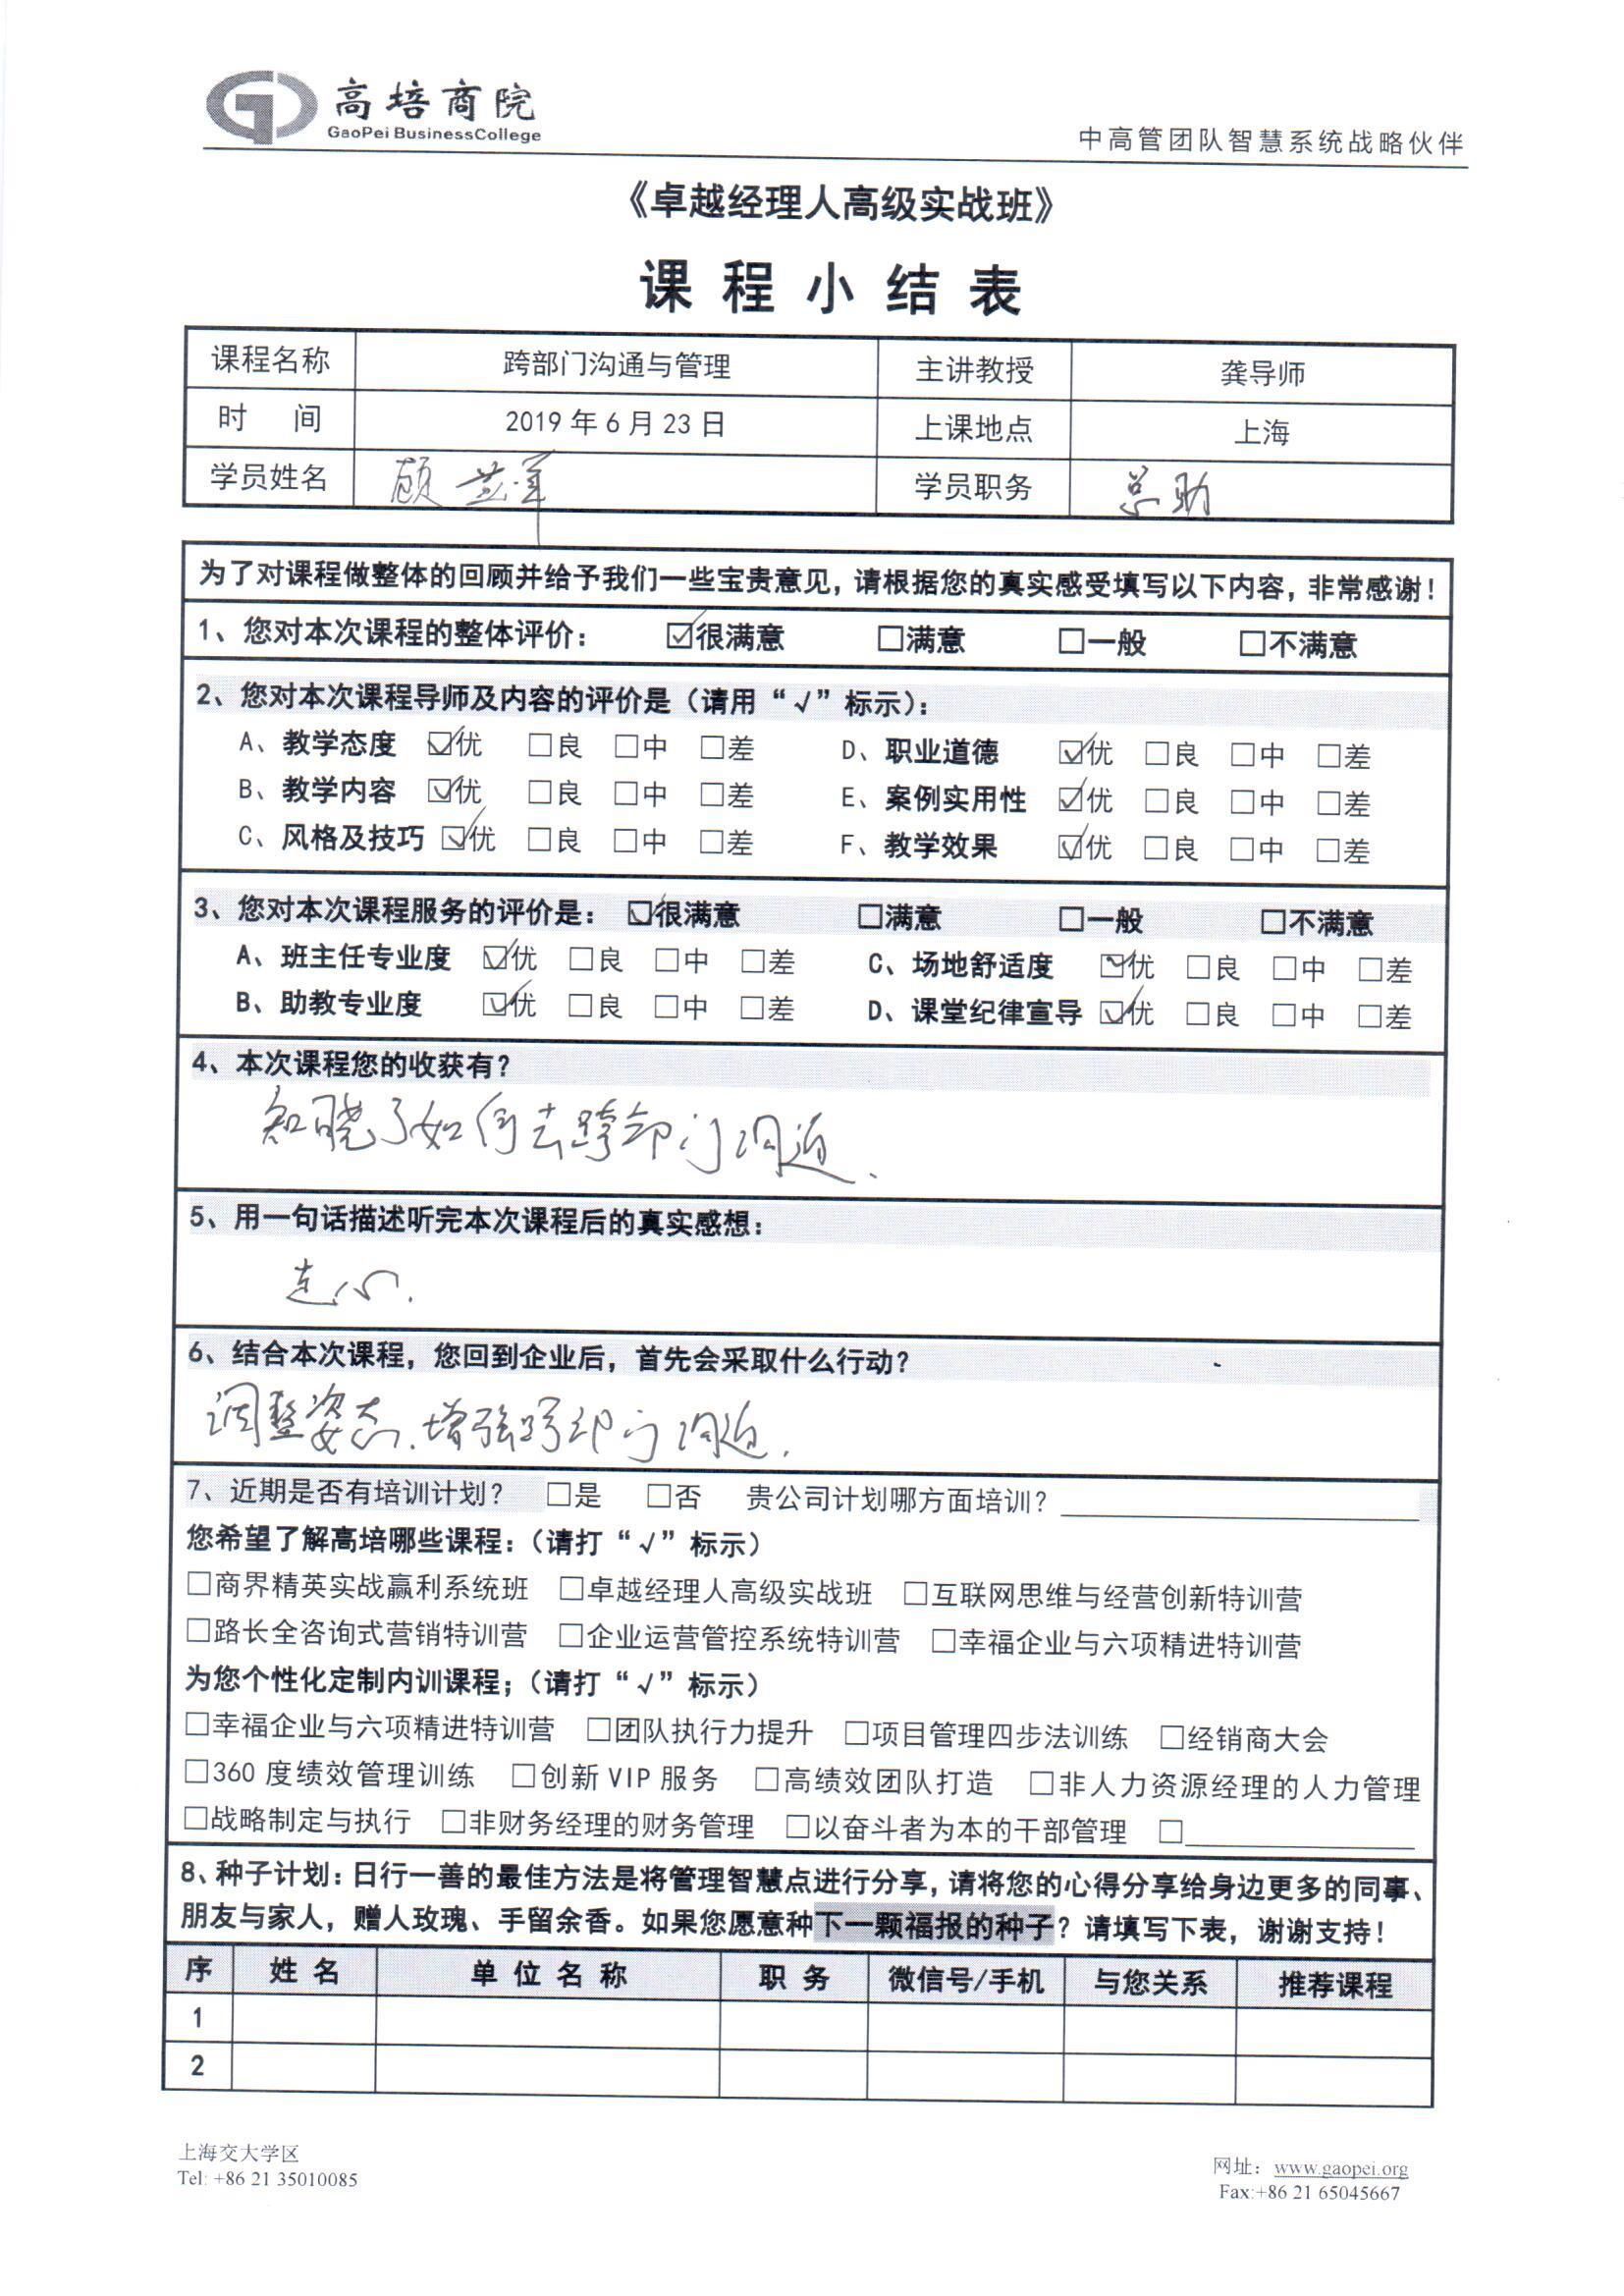 高培商院
GaoPei BusinessCollege
中高管团队智慧系统战略伙伴
《卓越经理人高级实战班》
课程小结表
课程名称 跨部门沟通与管理 主讲教授 龚导师
时 间 2019年6月23日 上课地点 上海
学员姓名 顾 军 学员职务 总助
为了对课程做整体的回顾并给予我们一些宝贵意见，请根据您的真实感受填写以下内容，非常感谢！
1、您对本次课程的整体评价： ☑很满意 □满意 □一般 □不满意
2、您对本次课程导师及内容的评价是（请用“√”标示）：
A、教学态度 ☑优 □良 □中 □差 D、职业道德 ☑优 □良 □中 □差
B、教学内容 ☑优 □良 □中 □差 E、案例实用性 ☑优 □良 □中 □差
C、风格及技巧 ☑优 □良 □中 □差 F、教学效果 ☑优 □良 □中 □差
3、您对本次课程服务的评价是： ☑很满意 □满意 □一般 □不满意
A、班主任专业度 ☑优 □良 □中 □差 C、场地舒适度 ☑优 □良 □中 □差
B、助教专业度 ☑优 □良 □中 □差 D、课堂纪律宣导 ☑优 □良 □中 □差
4、本次课程您的收获有？
知晓了如何去跨部门沟通.
5、用一句话描述听完本次课程后的真实感想：
走心.
6、结合本次课程，您回到企业后，首先会采取什么行动？
调整姿态.增强跨部门沟通.
7、近期是否有培训计划？ □是 □否 贵公司计划哪方面培训？
您希望了解高培哪些课程：（请打“√”标示）
□商界精英实战赢利系统班 □卓越经理人高级实战班 □互联网思维与经营创新特训营
□路长全咨询式营销特训营 □企业运营管控系统特训营 □幸福企业与六项精进特训营
为您个性化定制内训课程；（请打“√”标示）
□幸福企业与六项精进特训营 □团队执行力提升 □项目管理四步法训练 □经销商大会
□360度绩效管理训练 □创新VIP服务 □高绩效团队打造 □非人力资源经理的人力管理
□战略制定与执行 □非财务经理的财务管理 □以奋斗者为本的干部管理 □
8、种子计划：日行一善的最佳方法是将管理智慧点进行分享，请将您的心得分享给身边更多的同事、
朋友与家人，赠人玫瑰、手留余香。如果您愿意种下一颗福报的种子？请填写下表，谢谢支持！
序 姓名 单位名称 职务 微信号/手机 与您关系 推荐课程
1
2
上海交大学区
Tel: +86 21 35010085
网址： www.gaopei.org
Fax:+86 21 65045667